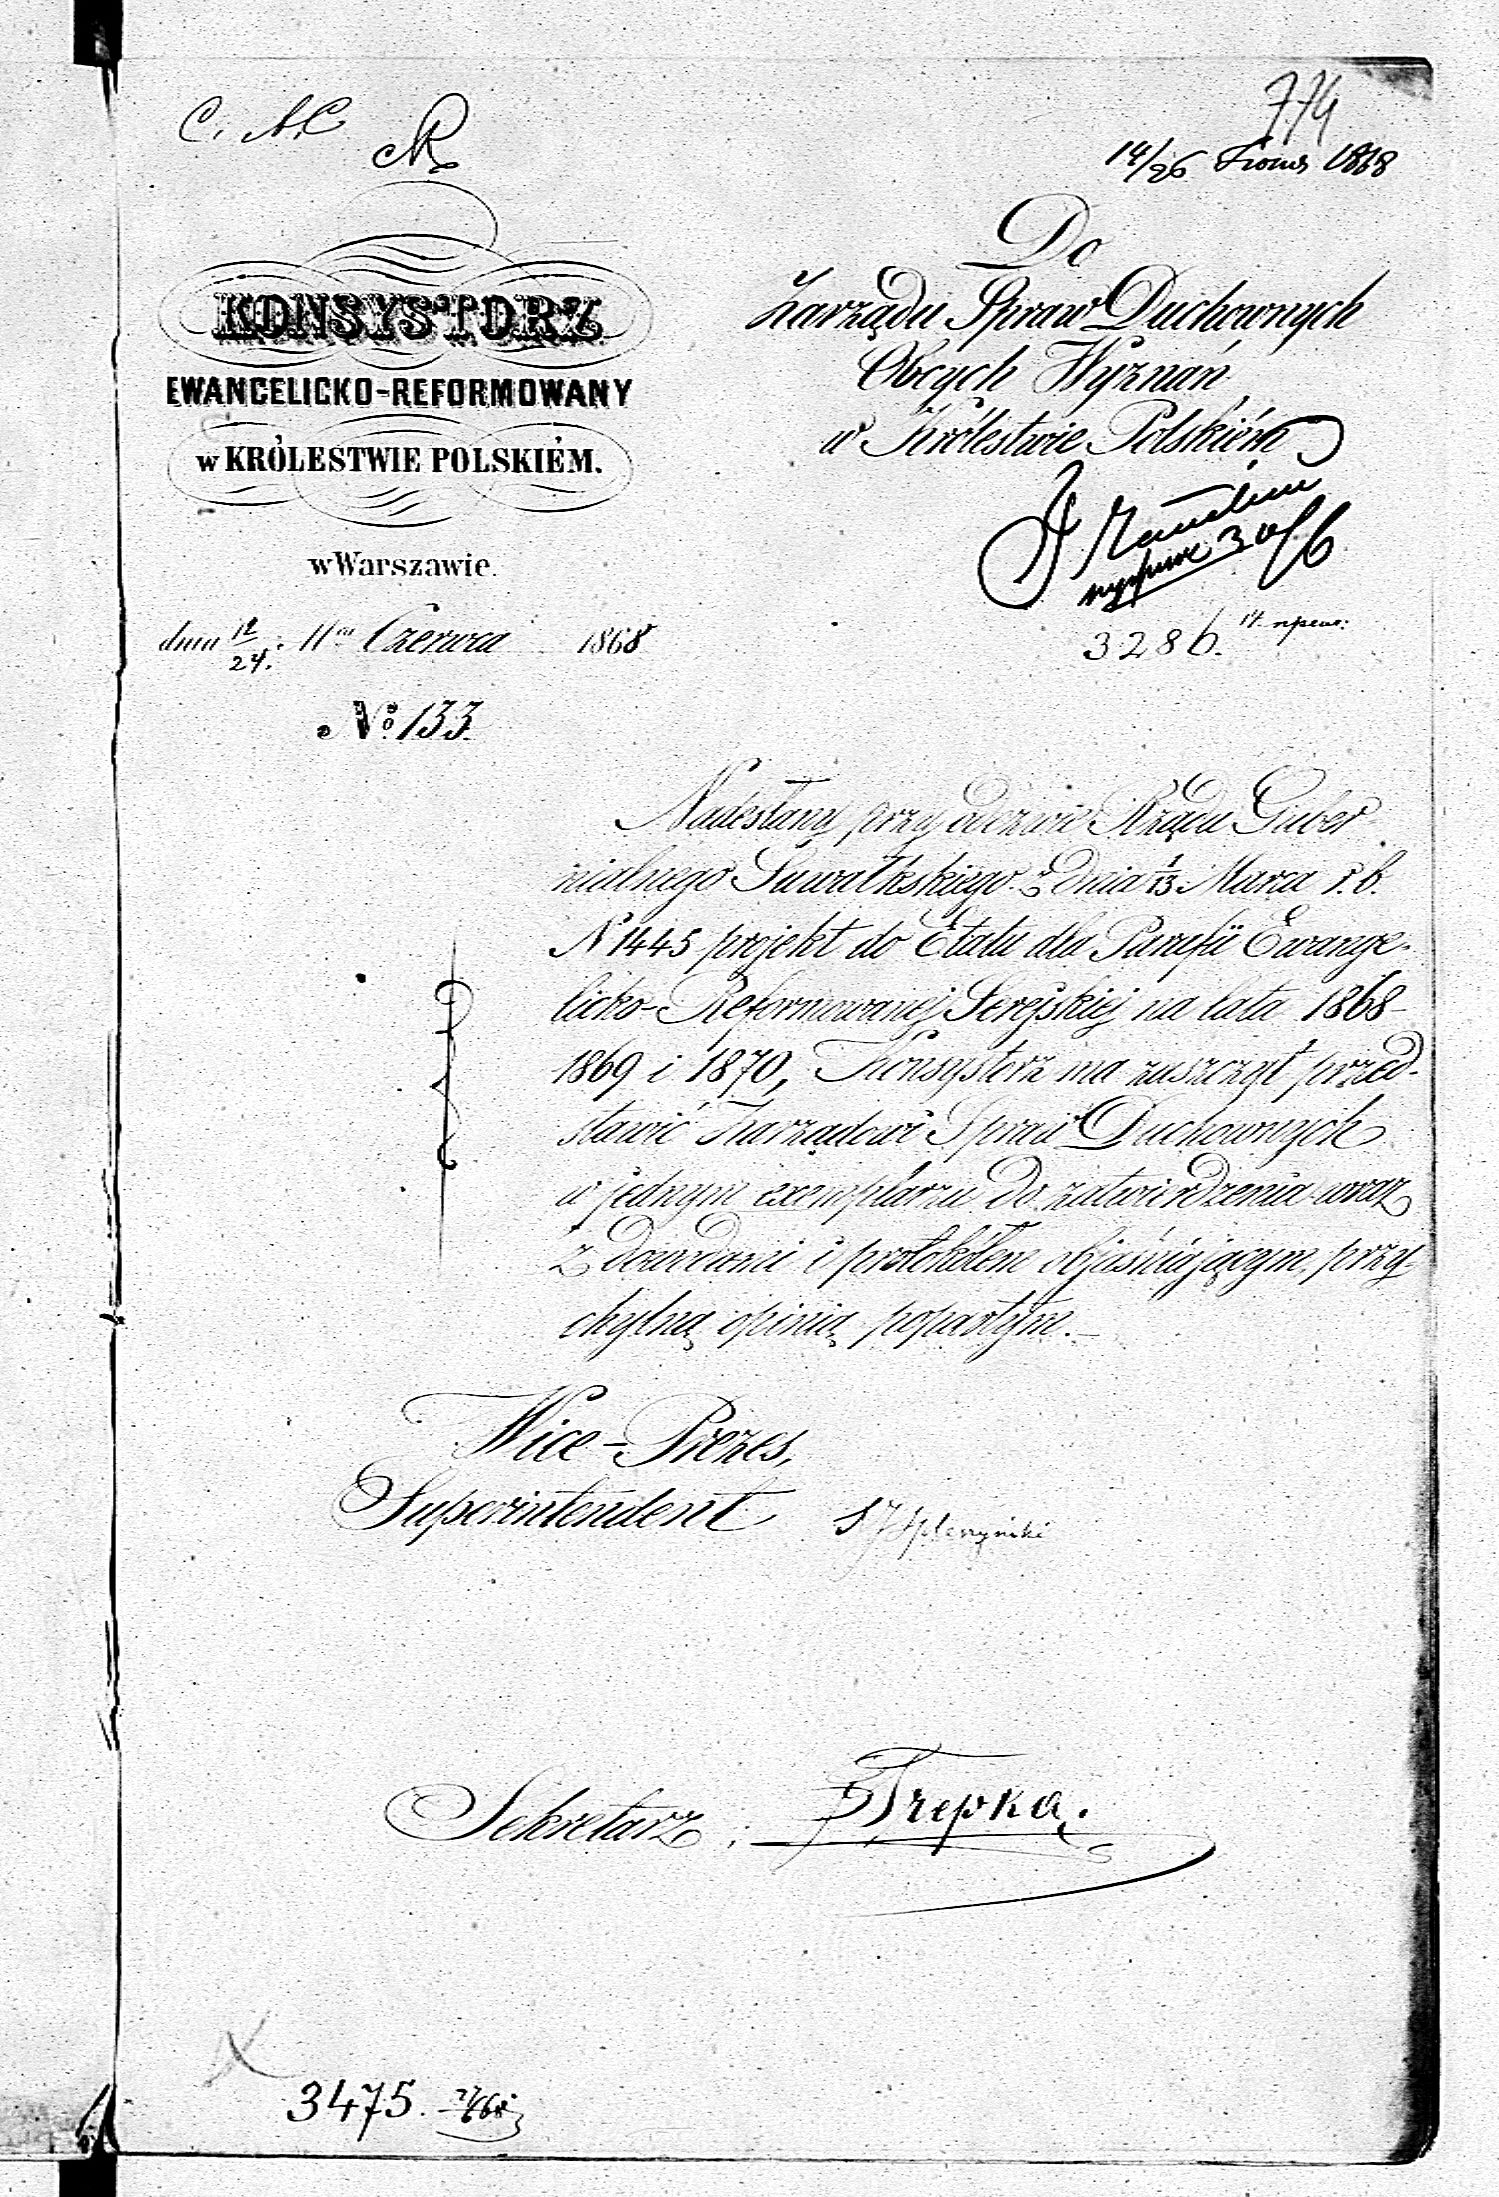 774
14/26 Іюня 1868
KONSYSTORZ
EWANGELICKO-REFORMOWANY
w KRÓLESTWIE POLSKIÉM.
w Warszawie.
dnia 12/24. Czerwca 1868
No 133.
Do
Zarządu Spraw Duchownych
Obcych Wyznań
w Królestwie Polskiém
3286.
Nadesłany przy odezwie Rządu Guber
nialnego Suwałkskiego z dnia 1/13 Marca r. b.
N 1445 projekt do Etatu dla Parafii Ewange-
licko-Reformowanej Serejskiej na lata 1868-
1869 i 1870, Konsystorz ma zaszczyt przed-
stawić Zarządowi Spraw Duchownych
w jednym exemplarzu do zatwierdzenia wraz
z dowodami i protokółem objaśniającym, przy-
chylną opinią popartym.-
Wice-Prezes,
Superintendent
Sekretarz: Trepka.
3475.